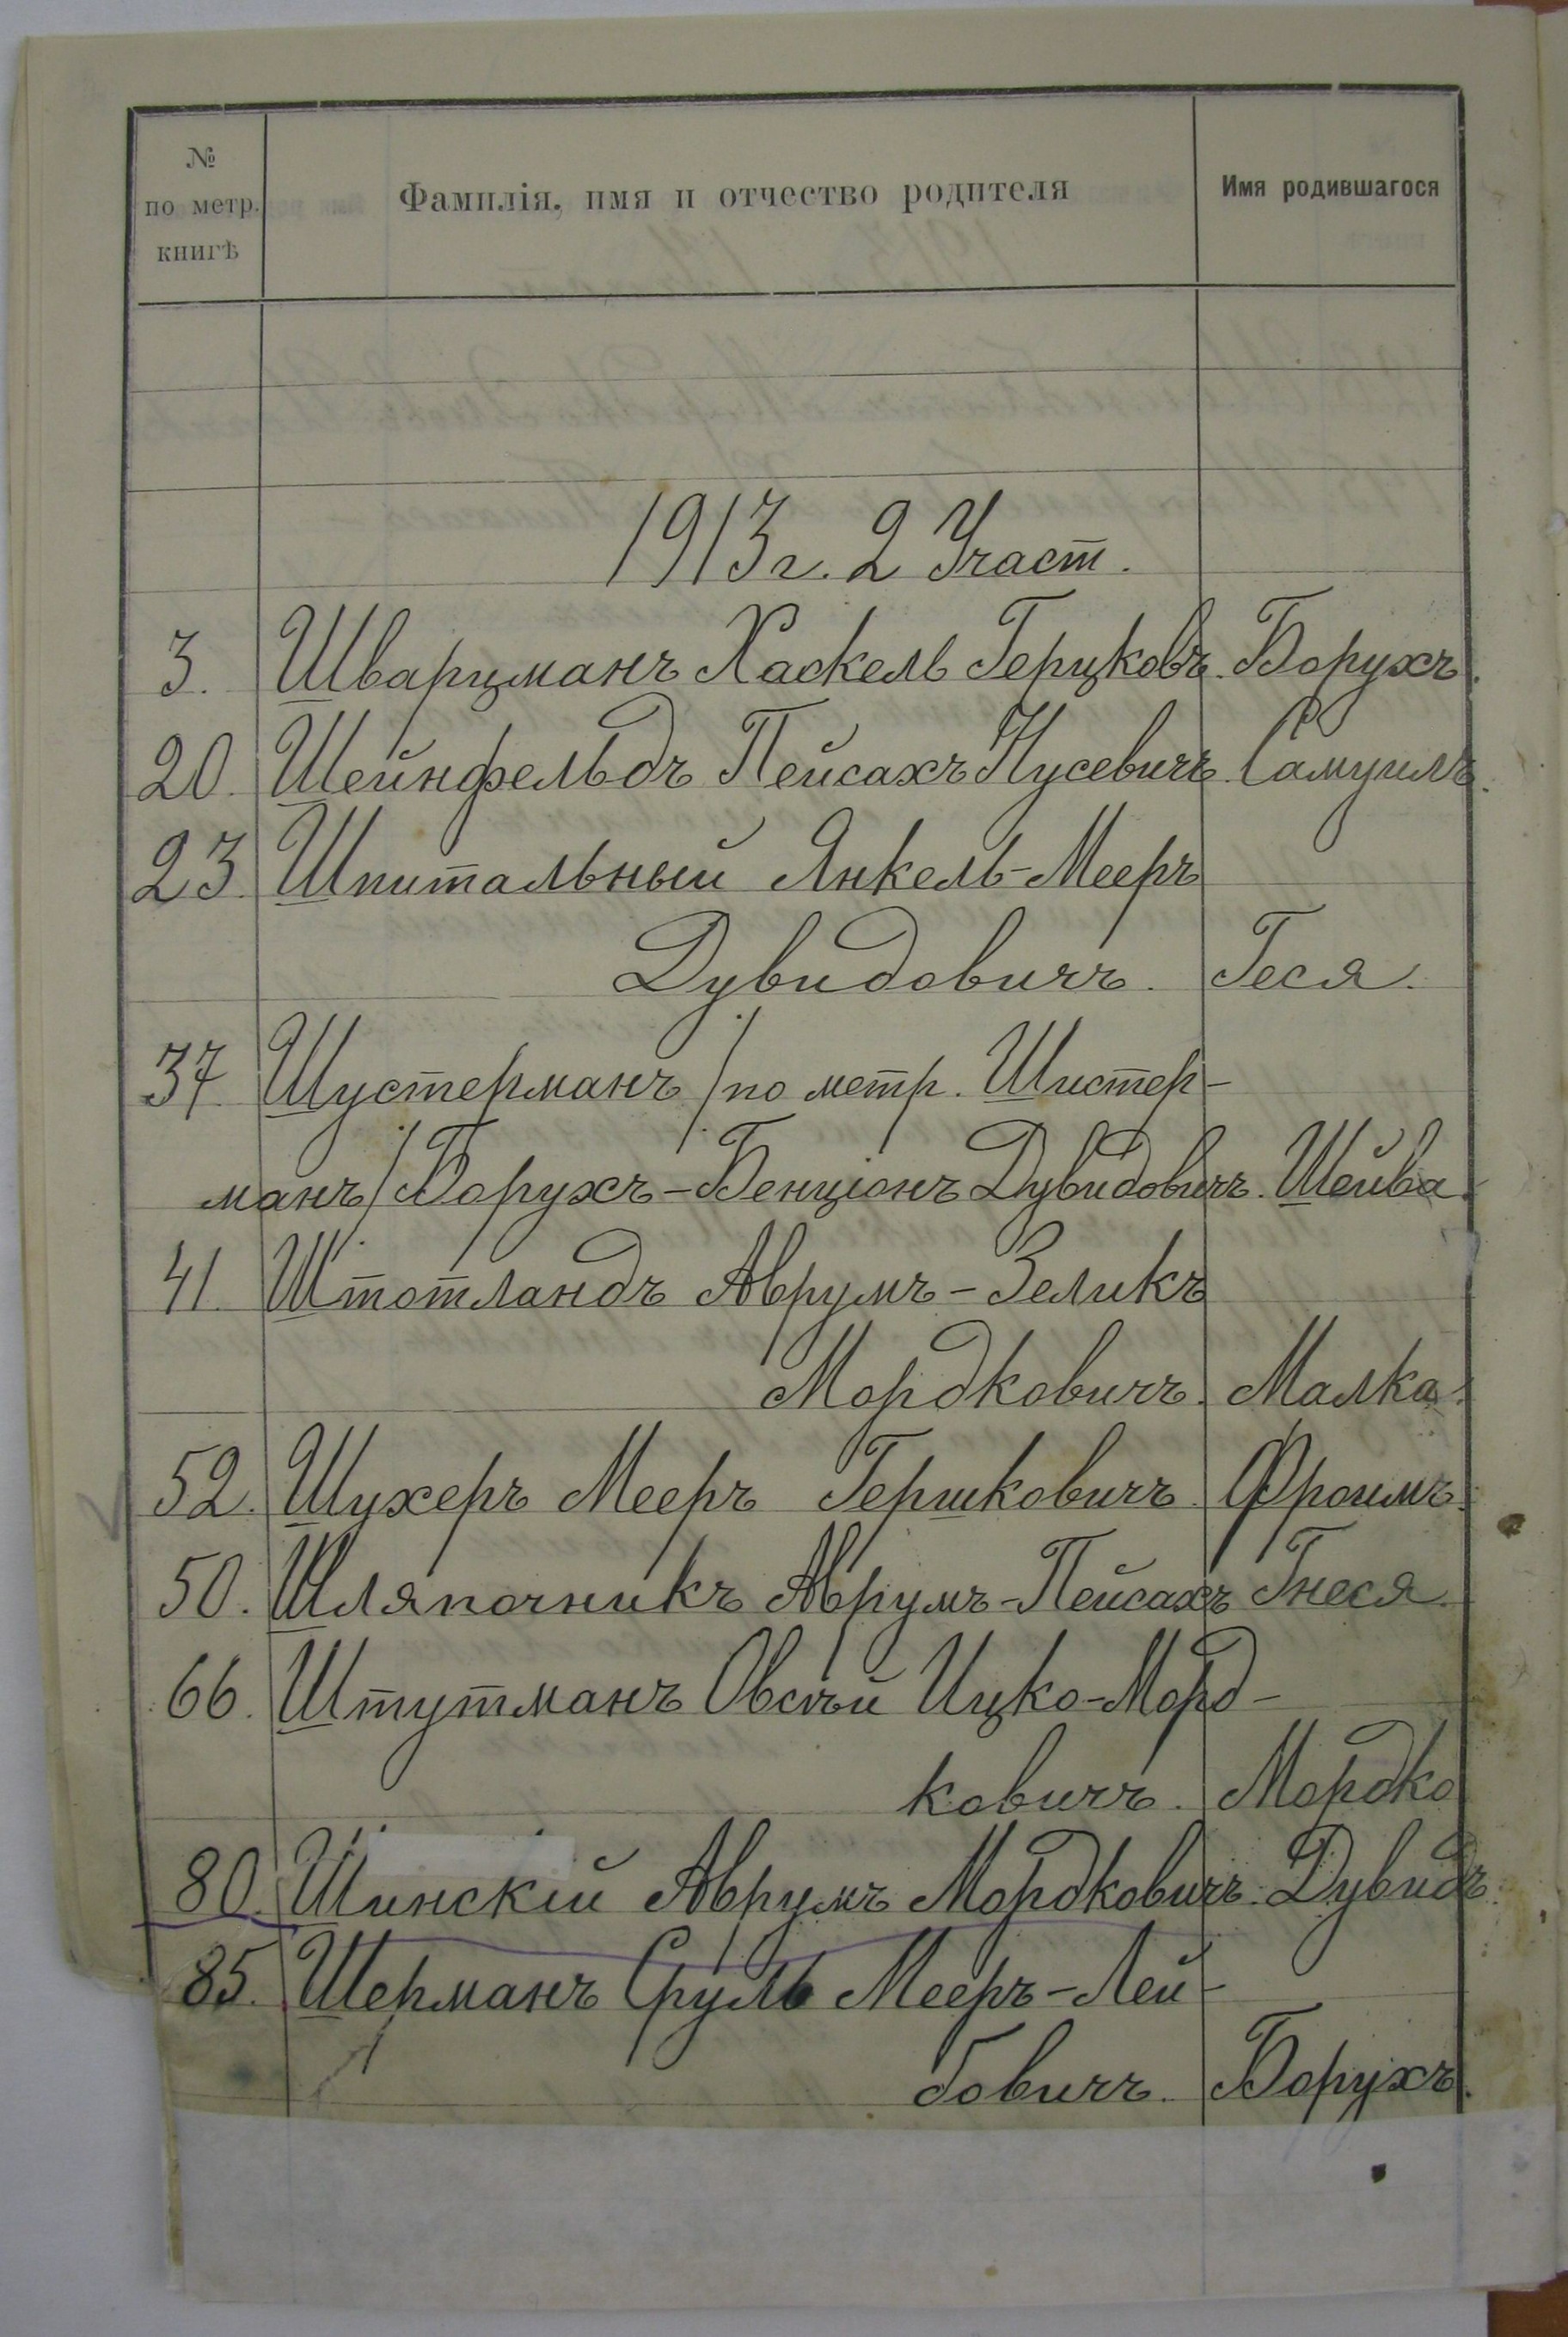 №
по метр.
книгѣ
Фамилія, имя и отчество родителя
Имя родившагося
1913 г. 2 Участ.
3. Шварцманъ Хаскель Герцковъ. Борухъ.
20. Шейнфельдъ Пейсахъ Нусевичъ. Самуилъ.
23. Шпитальный Янкель-Мееръ
Дувидовичъ. Геся.
37. Шустерманъ /по метр. Шистер-
манъ/ Борухъ-Бенціонъ Дувидовичъ. Шейва.
41. Штотландъ Аврумъ-Зеликъ
Мордковичъ. Малка.
52. Шухеръ Мееръ Гершковичъ. Фроимъ.
50. Шляпочникъ Аврумъ-Пейсахъ Гнеся.
66. Штутманъ Овсѣй Ицко-Морд-
ковичъ. Мордко
80. Шинскій Аврумъ Мордковичъ. Дувидъ.
85. Шерманъ Сруль Мееръ-Лей-
бовичъ. Борухъ.